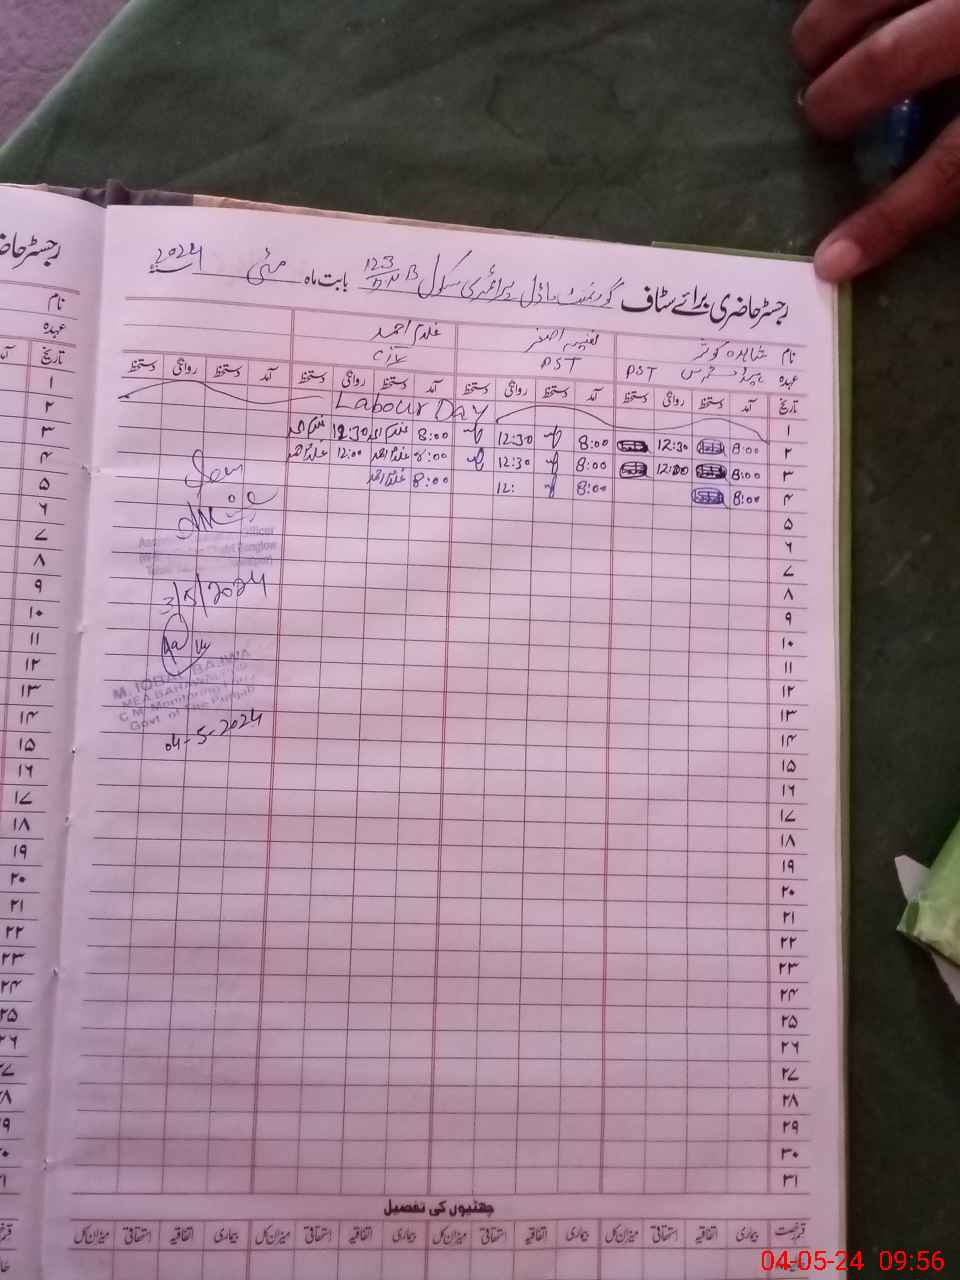 رجسٹر حاضری برائے سٹاف گورنمنٹ ماڈل پرائمری سکول 123/DNB بابت ماہ مئی 2024
نام شاہدہ کوثر نفیسہ اصغر غلام احمد
عہدہ ہیڈ مسٹریس PST PST C/IV
تاریخ آمد دستخط روانگی دستخط آمد دستخط روانگی دستخط آمد دستخط روانگی دستخط آمد دستخط روانگی دستخط
۱ Labour Day
۲ 8:00 12:30 8:00 12:30 8:00 غلام احمد 12:30 غلام احمد
۳ 8:00 12:00 8:00 12:30 8:00 غلام احمد 12:00 غلام احمد
۴ 8:00 8:00 12: 8:00 غلام احمد
۵
۶
۷
۸
۹
۱۰
۱۱
۱۲
۱۳
۱۴
۱۵
۱۶
۱۷
۱۸
۱۹
۲۰
۲۱
۲۲
۲۳
۲۴
۲۵
۲۶
۲۷
۲۸
۲۹
۳۰
۳۱
Seen
3/5/2024
M. IQBAL BAJWA
MEA BAHAWALNAGAR
C.M. Monitoring Force
Govt. of The Punjab
04-5-2024
چھٹیوں کی تفصیل
قسم رخصت بیماری اتفاقیہ استحقاقی میزان کل بیماری اتفاقیہ استحقاقی میزان کل بیماری اتفاقیہ استحقاقی میزان کل بیماری اتفاقیہ استحقاقی میزان کل
رجسٹر حاضری
نام
عہدہ
تاریخ
۱
۲
۳
۴
۵
۶
۷
۸
۹
۱۰
۱۱
۱۲
۱۳
۱۴
۱۵
۱۶
۱۷
۱۸
۱۹
۲۰
۲۱
۲۲
۲۳
۲۴
۲۵
۲۶
۲۷
۲۸
04-05-24 09:56